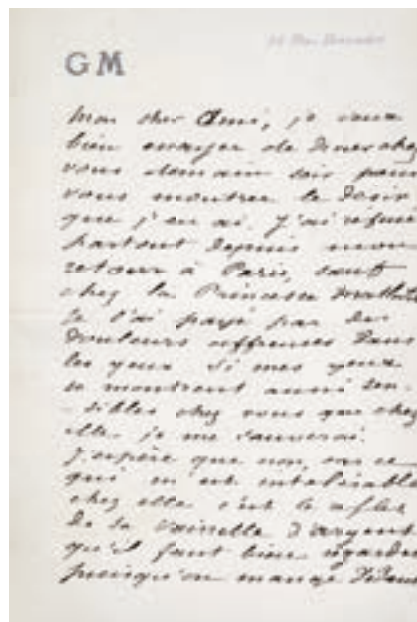 GM
Mon cher Ami, je veux
bien essayer de diner chez
vous demain soir pour
vous montrer le désir
que j'en ai. J'ai refusé
partout depuis mon
retour à Paris, sauf
chez la Princesse Mathilde
je l'ai payé par des
douleurs affreuses dans
les yeux. Si mes yeux
se montrent aussi sen-
-sibles chez vous que chez
elle, je me sauverai.
J'espère que non, car ce
qui m'est intolérable
chez elle c'est le reflet
de la vaisselle d'argent
qu'il faut bien regarder
puisqu'on mange dedans